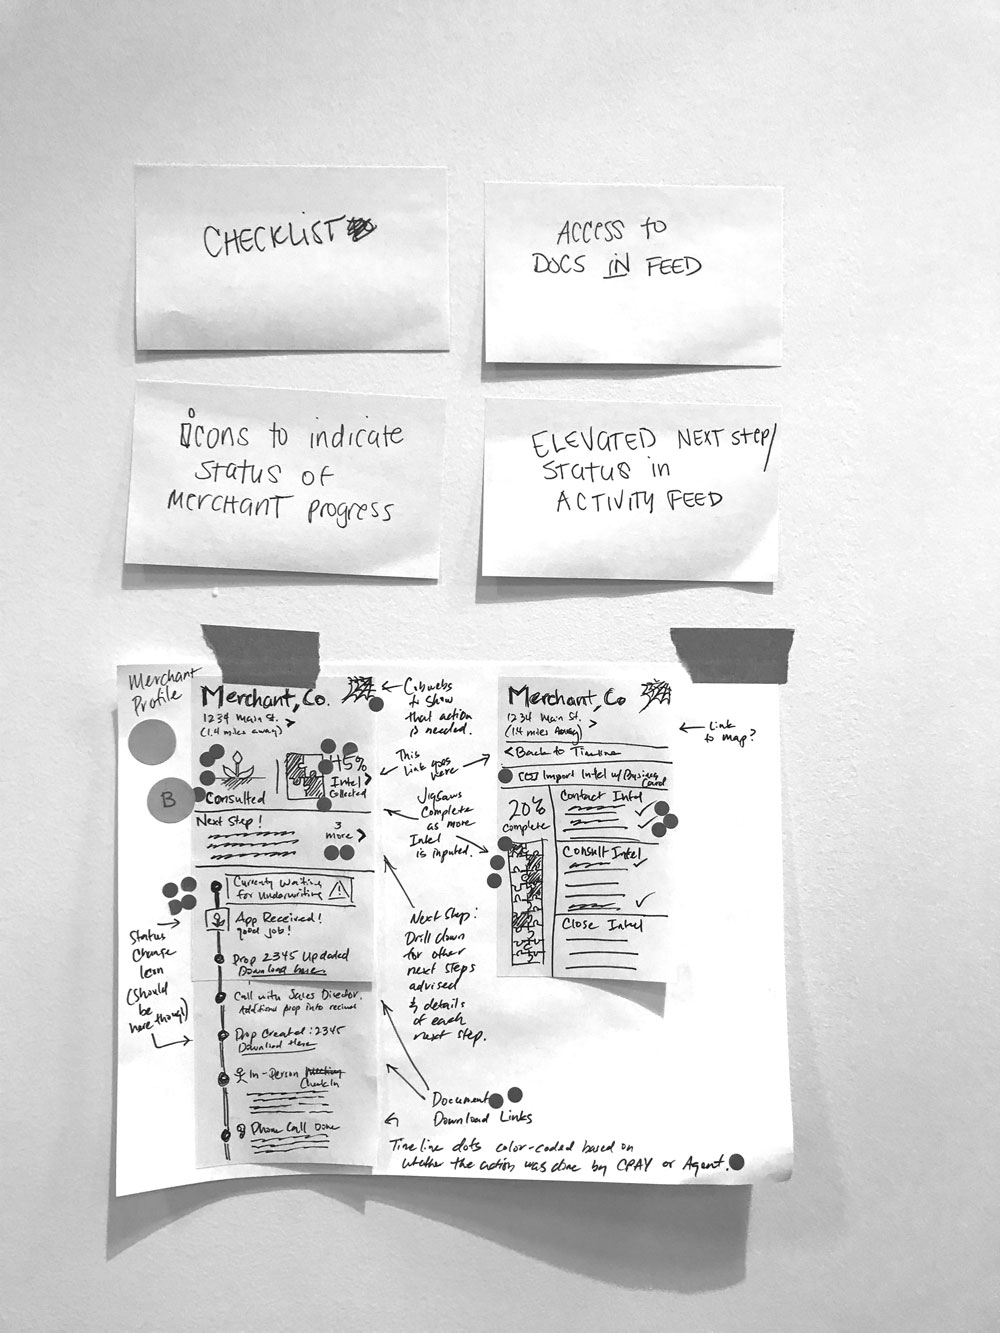 CHECKLIST
ACCESS to
DOCS IN FEED
icons to indicate
STATUS OF
MERCHANT PROGRESS
ELEVATED NEXT STEP/
STATUS in
ACTIVITY FEED
Merchant
Profile
B
Merchant, Co.
1234 Main St. >
(1.4 miles away)
45%
Intel >
Collected
Consulted
Next Step!
3
more >
Currently Waiting
for Underwriting
App Received!
good job!
Prop 2345 Updated
Download here
Call with Sales Director.
Additional prop info
Prop Created: 2345
Download Here
In-Person
Check In
Phone Call Done
Status
Change
Icon
(should
be
here though)
Cobwebs
to show
that action
is needed.
This
link goes
here
Jigsaws
Complete
as more
Intel
is inputed.
Next Step:
Drill down
for other
next steps
advised
& details
of each
next step.
Document
Download Links
Timeline dots color-coded based on
whether the action was done by CPAY or Agent.
Merchant, Co
1234 Main St. >
(1.4 miles away)
< Back to Timeline
Import Intel w/ Business
Card
20%
Complete
Contact Intel
Consult Intel
Close Intel
Link
to map?